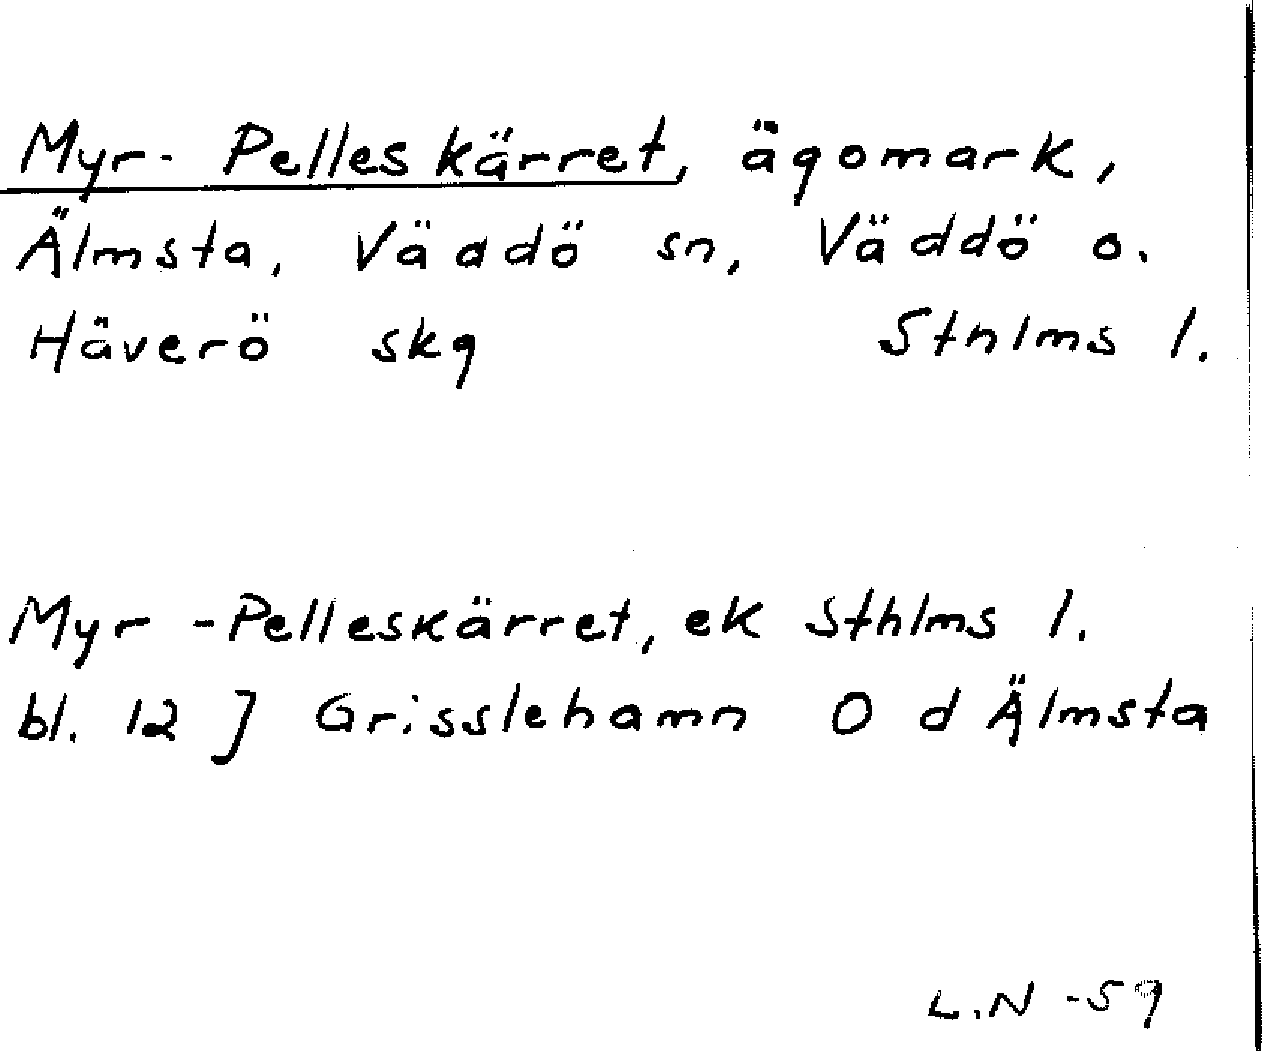 Myr- Pelleskärret, ägomark,
Älmsta, Väddö sn, Väddö o.
Häverö skg Sthlms l.
Myr-Pelleskärret, ek Sthlms l.
bl. 12 J Grisslehamn O d Älmsta
L.N -59